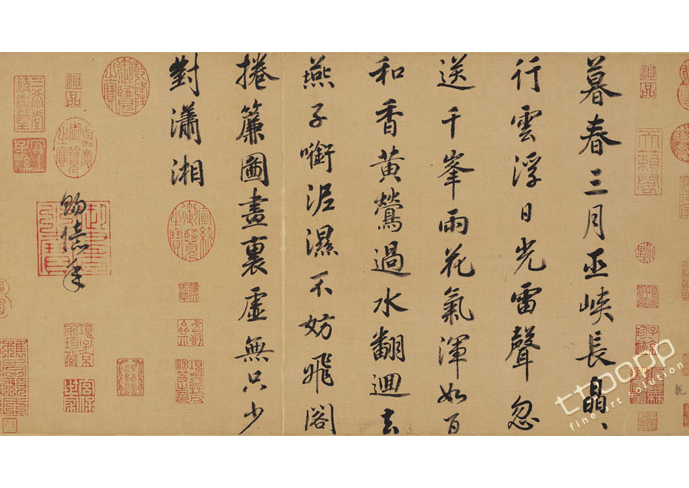 暮春三月巫峽長晶〻
行雲浮日光雷聲忽
送千峯雨花氣渾如百
和香黃鶯過水翻迴去
燕子啣泥濕不妨飛閣
捲簾圖畫裏虛無只少
對瀟湘
賜億年
ttpopp
fine art solution